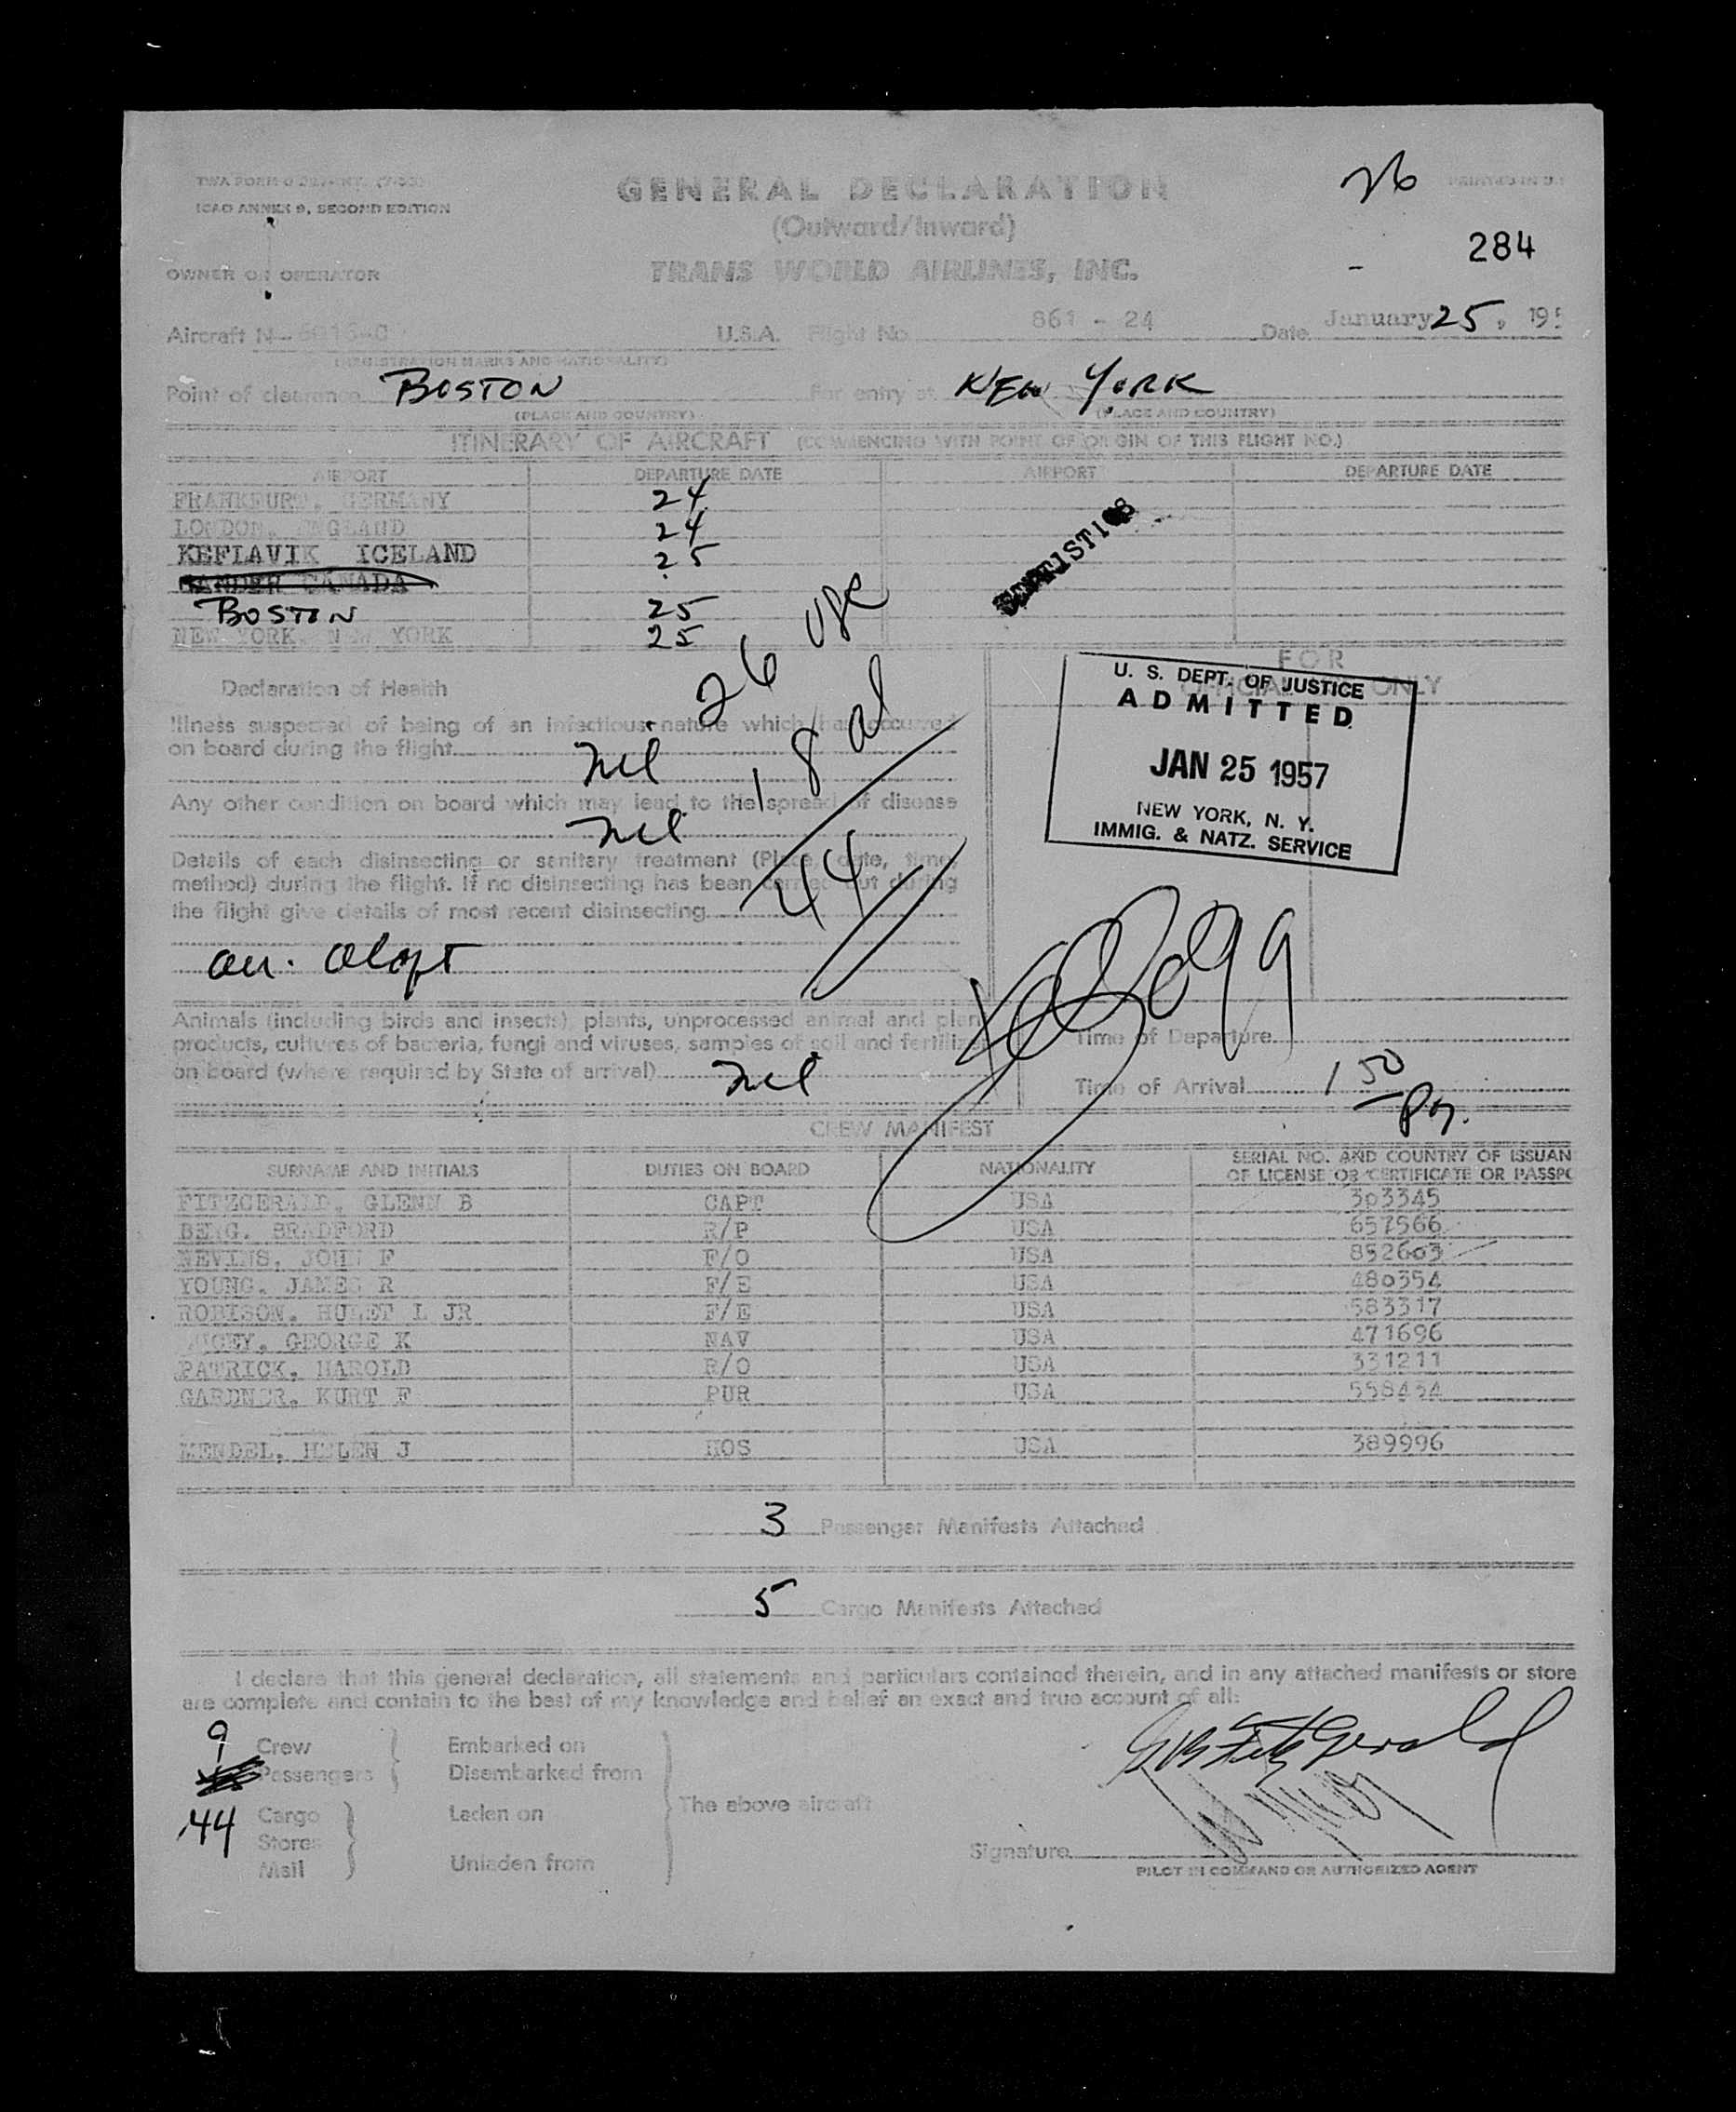 26
ICAO ANNEX 9, SECOND EDITION
GENERAL DECLARATION
(Outward/Inward)
284
OWNER OR OPERATOR
TRANS WORLD AIRLINES, INC.
Aircraft N- U.S.A. Flight No. 861 - 24 Date January 25, 195
(REGISTRATION MARKS AND NATIONALITY)
Point of clearance BOSTON For entry at NEW YORK
(PLACE AND COUNTRY) (PLACE AND COUNTRY)
ITINERARY OF AIRCRAFT (COMMENCING WITH POINT OF ORIGIN OF THIS FLIGHT NO.)
AIRPORT DEPARTURE DATE AIRPORT DEPARTURE DATE
FRANKFURT, GERMANY 24
LONDON, ENGLAND 24
KEFLAVIK ICELAND 25
GANDER CANADA
BOSTON 25
NEW YORK, NEW YORK 25
STATISTICS
26 usc
18 al
44
FOR
OFFICIAL USE ONLY
U. S. DEPT. OF JUSTICE
ADMITTED
JAN 25 1957
NEW YORK, N. Y.
IMMIG. & NATZ. SERVICE
Declaration of Health
Illness suspected of being of an infectious nature which has occurred
on board during the flight nil
Any other condition on board which may lead to the spread of disease
nil
Details of each disinsecting or sanitary treatment (Place, date, time,
method) during the flight. If no disinsecting has been carried out during
the flight give details of most recent disinsecting
Animals (including birds and insects), plants, unprocessed animal and plant
products, cultures of bacteria, fungi and viruses, samples of soil and fertilizer
on board (where required by State of arrival) nil
Time of Departure
Time of Arrival 1 50
CREW MANIFEST
SURNAME AND INITIALS DUTIES ON BOARD NATIONALITY SERIAL NO. AND COUNTRY OF ISSUAN
OF LICENSE OR CERTIFICATE OR PASSPO
FITZGERALD, GLENN B CAPT USA 303345
BERG, BRADFORD R/P USA 657566
NEVINS, JOHN F F/O USA 852603
YOUNG, JAMES R F/E USA 480354
ROBISON, HULET L JR F/E USA 583317
GEORGE K NAV USA 471696
PATRICK, HAROLD R/O USA 331211
GARDNER, KURT F PUR USA 558434
MENDEL, HELEN J HOS USA 389996
3 Passenger Manifests Attached
5 Cargo Manifests Attached
I declare that this general declaration, all statements and particulars contained therein, and in any attached manifests or store
are complete and contain to the best of my knowledge and belief an exact and true account of all:
9 Crew Embarked on
Passengers Disembarked from
The above aircraft
44 Cargo Laden on
Stores
Mail Unladen from
GB FitzGerald
Signature
PILOT IN COMMAND OR AUTHORIZED AGENT